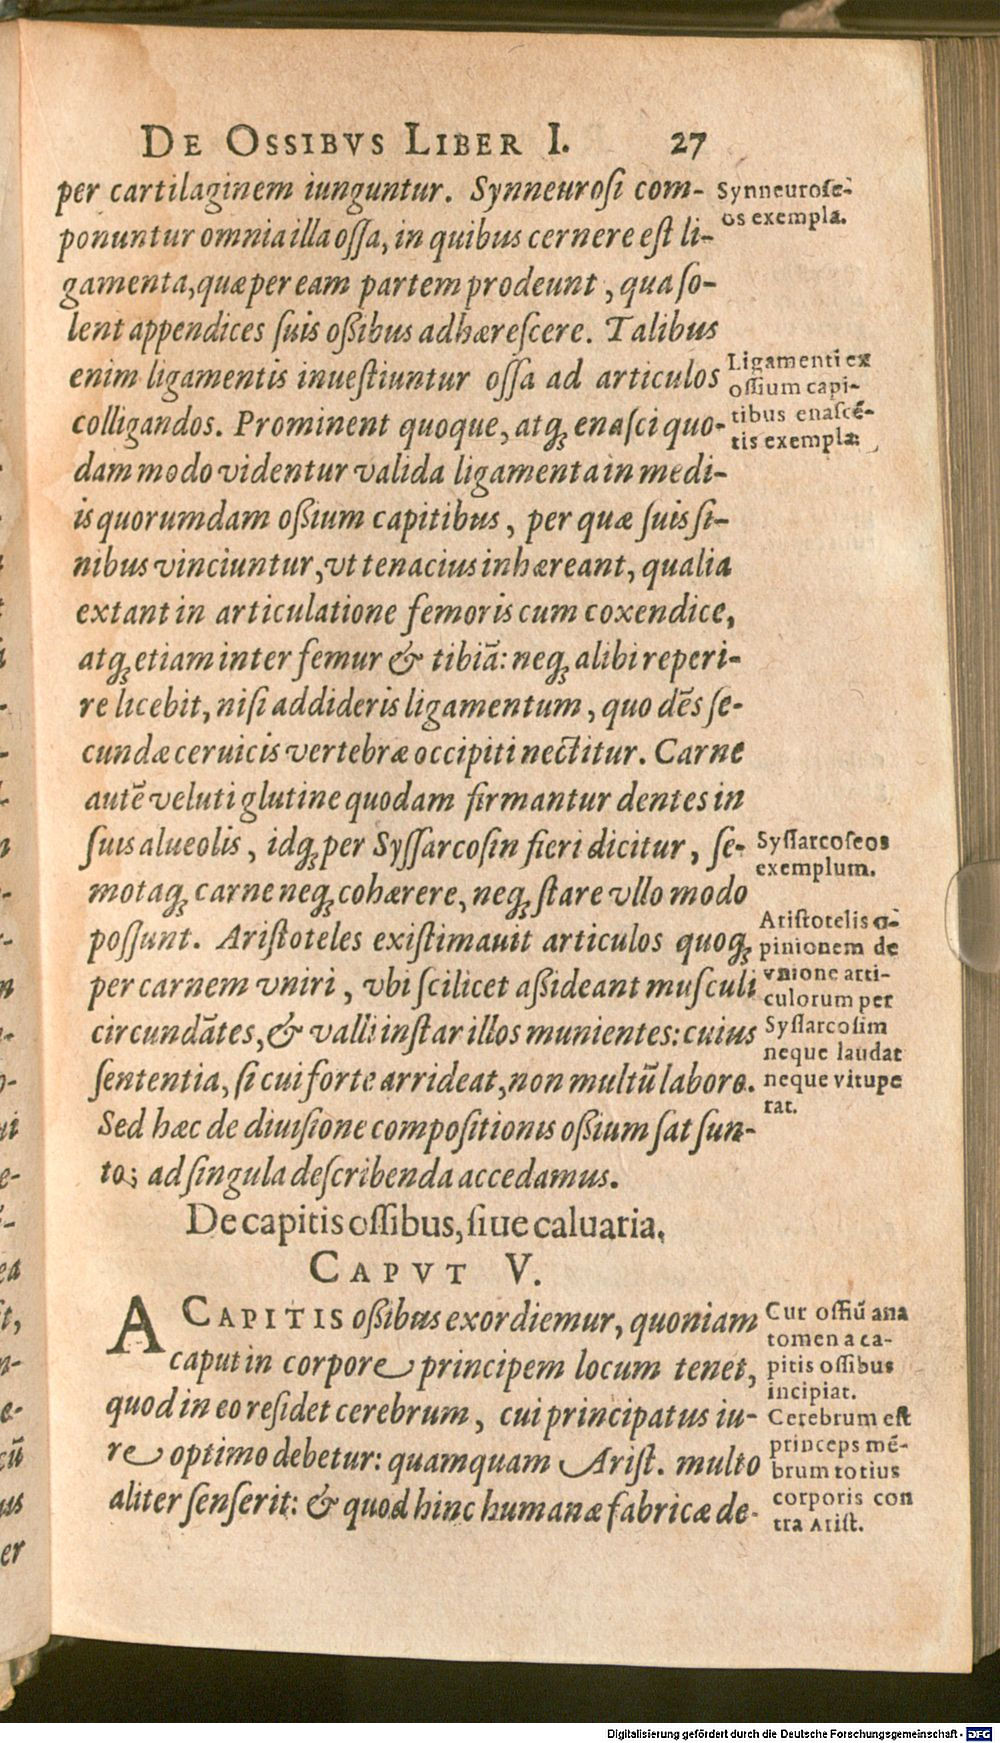 DE OSSIBVS LIBER I. 27
per cartilaginem iunguntur. Synneurosi com-
ponuntur omnia illa ossa, in quibus cernere est li-
gamenta, quæ per eam partem prodeunt, qua so-
lent appendices suis oßibus adhærescere. Talibus
enim ligamentis inuestiuntur ossa ad articulos
colligandos. Prominent quoque, atq; enasci quo-
dammodo videntur valida ligamenta in medi-
is quorumdam oßium capitibus, per quæ suis si-
nibus vinciuntur, vt tenacius inhæreant, qualia
extant in articulatione femoris cum coxendice,
atq; etiam inter femur & tibiā: neq; alibi reperi-
re licebit, nisi addideris ligamentum, quo dēs se-
cundæ ceruicis vertebræ occipiti nectitur. Carne
autē veluti glutine quodam firmantur dentes in
suis alueolis, idq; per Syssarcosin fieri dicitur, se-
motaq; carne neq; cohærere, neq; stare vllo modo
possunt. Aristoteles existimauit articulos quoq;
per carnem vniri, vbi scilicet aßideant musculi
circundātes, & valli instar illos munientes: cuius
sententia, si cui forte arrideat, non multū laboro.
Sed hæc de diuisione compositionis oßium sat sun-
to; ad singula describenda accedamus.
Synneurose-
os exempla.
Ligamenti ex
ossium capi-
tibus enascē-
tis exempla.
Syssarcoseos
exemplum.
Aristotelis o-
pinionem de
vnione arti-
culorum per
Syssarcosim
neque laudat
neque vitupe
rat.
De capitis ossibus, siue caluaria.
CAPVT V.
A CAPITIS oßibus exordiemur, quoniam
caput in corpore principem locum tenet,
quod in eo residet cerebrum, cui principatus iu-
re optimo debetur: quamquam Arist. multo
aliter senserit: & quod hinc humanæ fabricæ de-
Cur ossiū ana
tomen a ca-
pitis ossibus
incipiat.
Cerebrum est
princeps mē-
brum totius
corporis con
tra Arist.
Digitalisierung gefördert durch die Deutsche Forschungsgemeinschaft - DFG